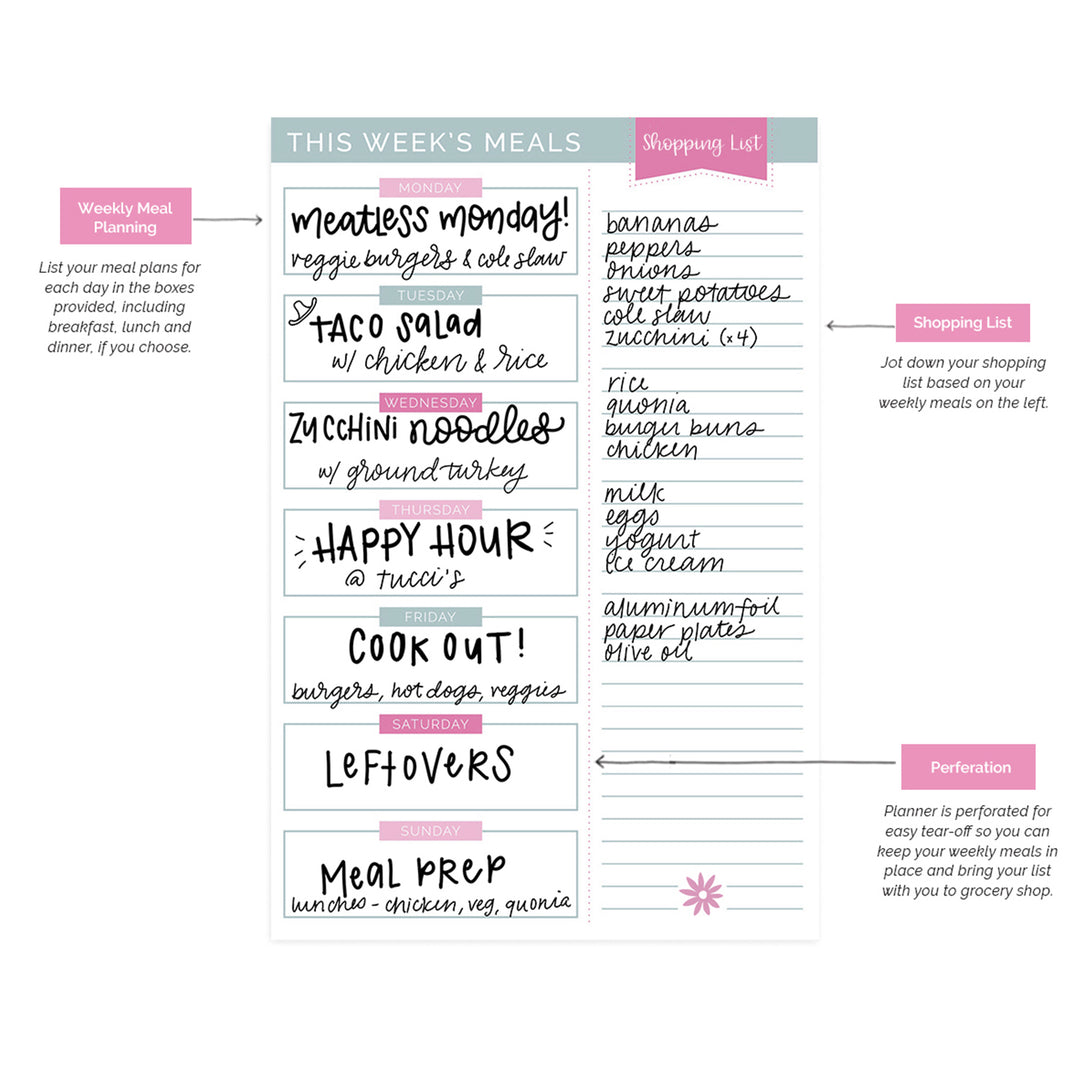 THIS WEEK'S MEALS
Shopping List
Weekly Meal
Planning
List your meal plans for
each day in the boxes
provided, including
breakfast, lunch and
dinner, if you choose.
MONDAY
meatless monday!
veggie burgers & cole slaw
TUESDAY
taco salad
w/ chicken & rice
WEDNESDAY
zucchini noodles
w/ ground turkey
THURSDAY
HAPPY HOUR
@ tucci's
FRIDAY
COOK OUT!
burgers, hot dogs, veggies
SATURDAY
LeftOVeRS
SUNDAY
Meal PRep
lunches - chicken, veg, quonia
bananas
peppers
onions
sweet potatoes
cole slaw
zucchini (x4)
rice
quonia
burger buns
chicken
milk
eggs
yogurt
ice cream
aluminum foil
paper plates
olive oil
Shopping List
Jot down your shopping
list based on your
weekly meals on the left.
Perferation
Planner is perforated for
easy tear-off so you can
keep your weekly meals in
place and bring your list
with you to grocery shop.